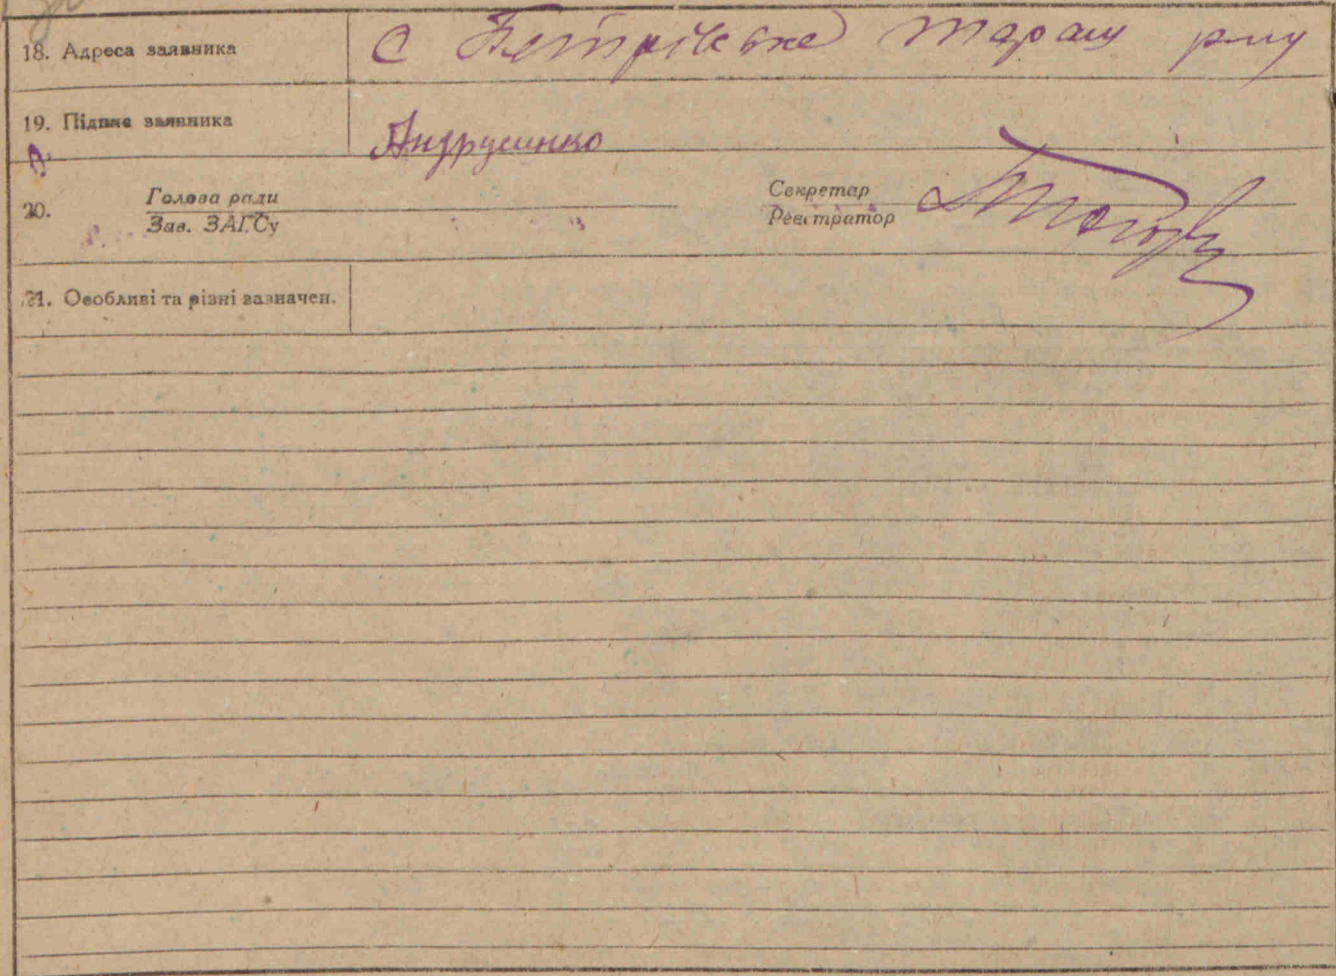 18. Адреса заявника С Петрівське Таращ р-ну
19. Підпис заявника Андрусенко
20. Голова ради Секретар
Зав. ЗАГСу Реєстратор
21. Особливі та різні зазначен.